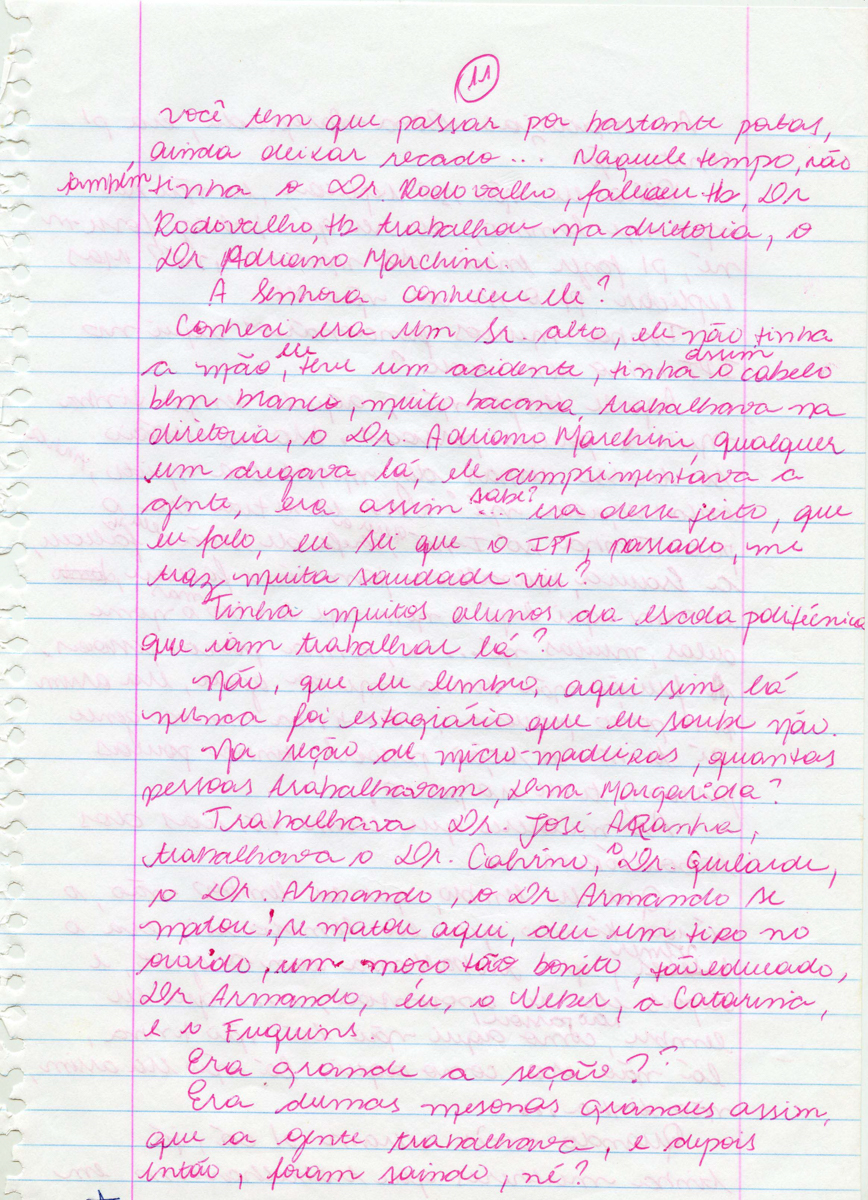 11
você tem que passar por bastante portas,
ainda deixar recado... Naquele tempo, não
também tinha o Dr. Rodovalho, faleceu tb, Dr
Rodovalho, tb trabalhou na diretoria, o
Dr Adriano Marchini.
A Senhora conheceu ele?
Conheci era um Sr. alto, ele não tinha
a mão, ele teve um acidente, tinha assim o cabelo
bem branco, muito bacana, trabalhava na
diretoria, o Dr. Adriano Marchini, qualquer
um chegava lá, ele cumprimentava a
gente, era assim sabe? ... era desse jeito, que
eu falo, eu sei que o IPT, passado, me
traz muita saudade viu?
Tinha muitos alunos da escola politécnica
que iam trabalhar lá?
Não, que eu lembro, aqui sim, lá
nunca foi estagiário que eu soube não.
Na seção de micro-madeiras, quantas
pessoas trabalhavam, Dona Margarida?
Trabalhava Dr. José Aranha,
trabalhava o Dr. Calvino, o Dr.
o Dr. Armando, o Dr Armando se
matou! se matou aqui, deu um tiro no
ouvido, um moço tão bonito, tão educado,
Dr Armando, eu, o Weber, a Catarina,
e o Fuquins.
Era grande a seção?
Era dumas mesonas grandes assim,
que a gente trabalhava, e depois
então, foram saindo, né?